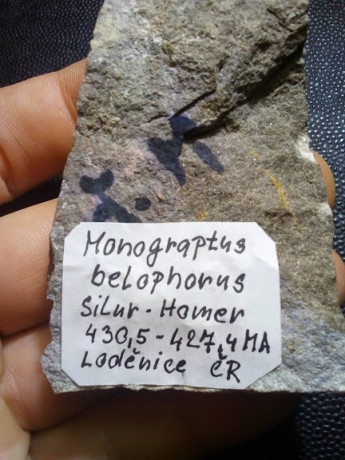 Monograptus
belophorus
Silur - Homer
430,5 - 427,4 MA
Loděnice ČR